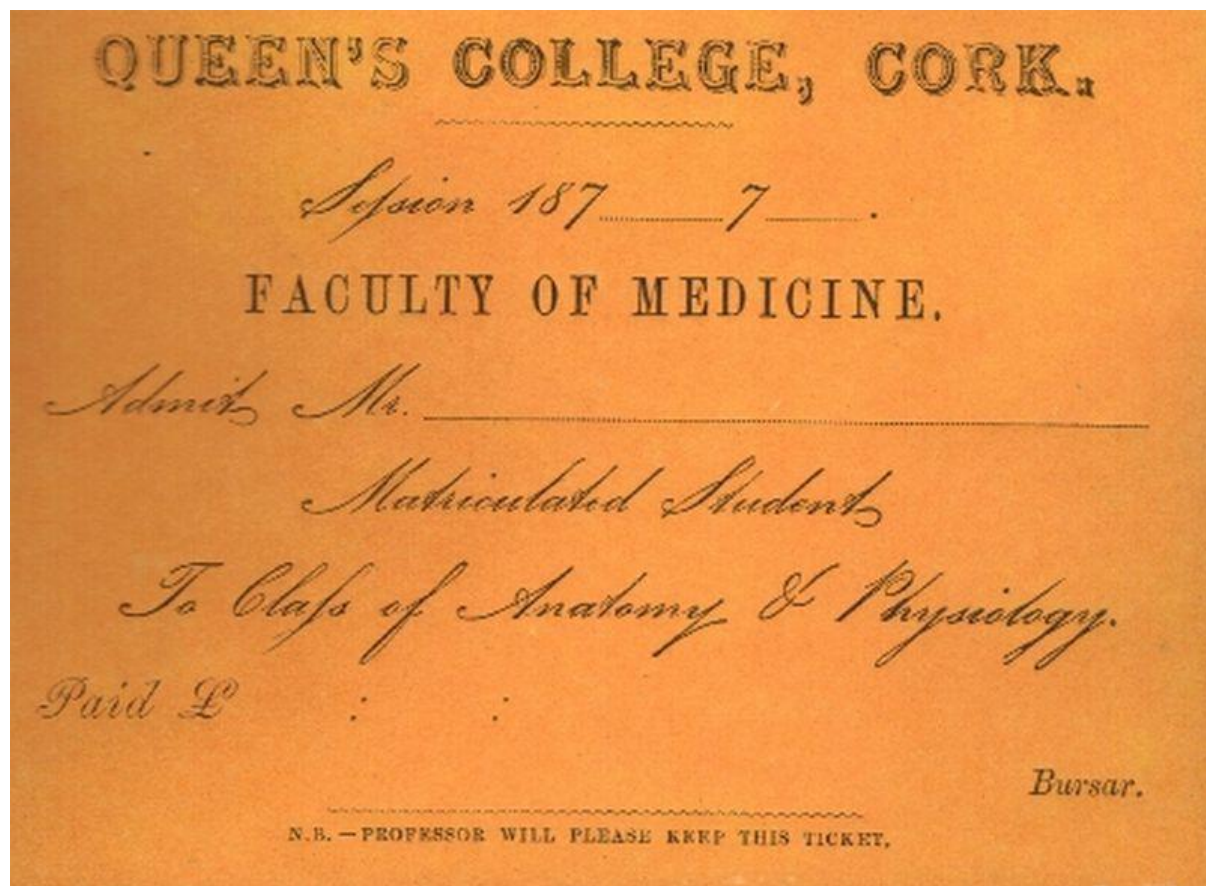 QUEEN'S COLLEGE, CORK.
Seſsion 187 7 .
FACULTY OF MEDICINE.
Admit Mr.
Matriculated Student
To Claſs of Anatomy & Physiology.
Paid £ : :
Bursar.
N.B. — PROFESSOR WILL PLEASE KEEP THIS TICKET.